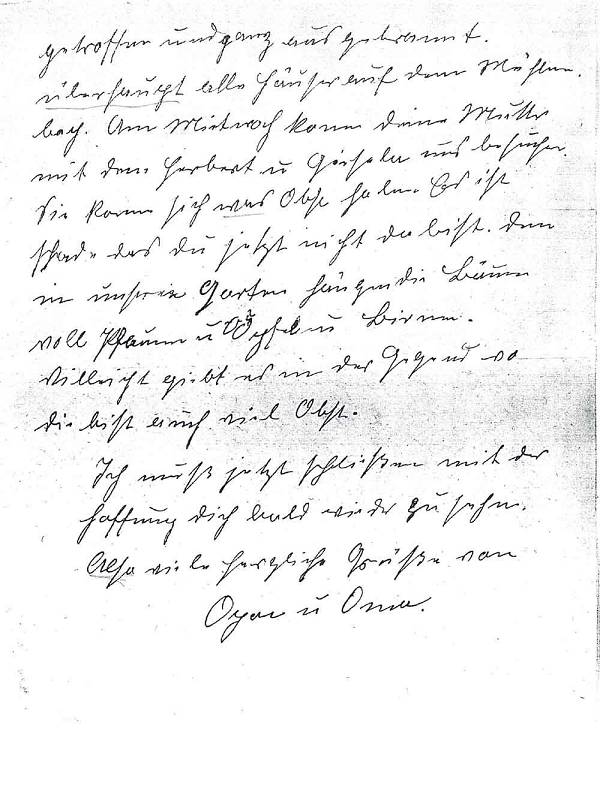 getroffen und ganz ausgebrannt.
überhaupt alle Häuser auf dem Mühlen
bach. Am Mietwoch kamm deine Mutter
mit dem Herbert u Giesela uns besuchen.
Sie kamm sich was Obst holen. Es ist
schade das du jetzt nicht da bist. denn
in unseren Garten hängen die Bäume
voll Pflaumen u Äpfel u Birnen.
Villeicht giebt es in der Gegend wo
du bist auch viel Obst.
Ich muß jetzt schließen mit der
Hoffnung dich bald wieder zu sehn.
Also viele herzliche Grüße von
Opa u Oma.